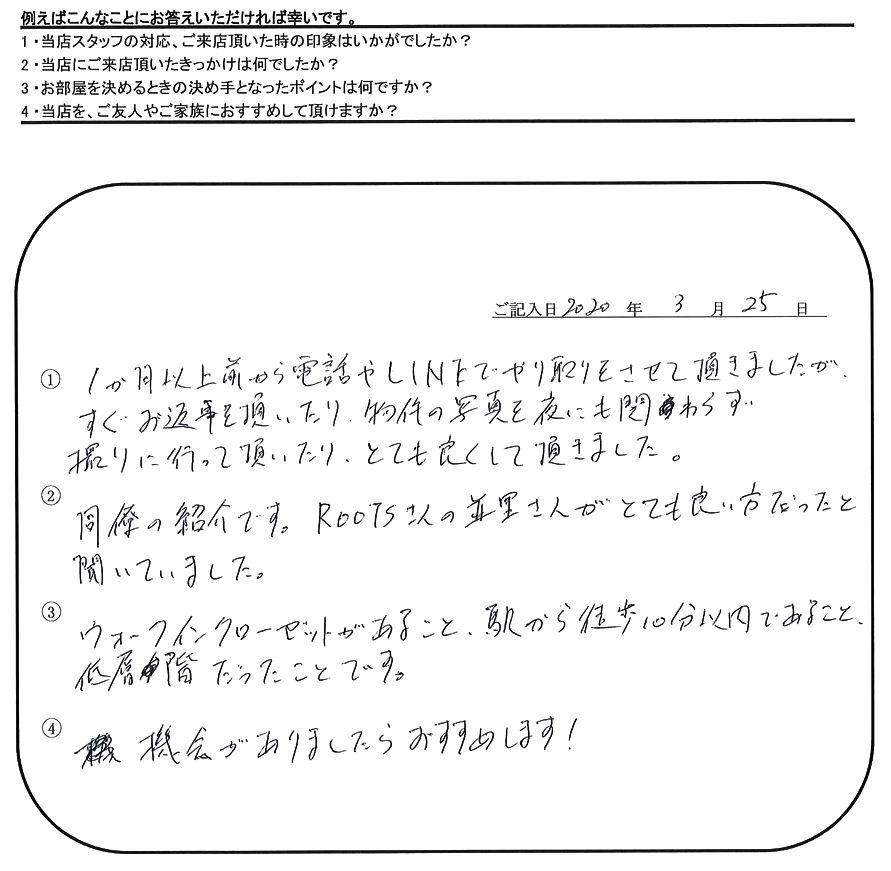 例えばこんなことにお答えいただければ幸いです。
1・当店スタッフの対応、ご来店頂いた時の印象はいかがでしたか？
2・当店にご来店頂いたきっかけは何でしたか？
3・お部屋を決めるときの決め手となったポイントは何ですか？
4・当店を、ご友人やご家族におすすめして頂けますか？
ご記入日2020年 3 月 25 日
① 1か月以上前から電話やLINEでやり取りをさせて頂きましたが、
すぐお返事を頂いたり、物件の写真を夜にも関わらず
撮りに行って頂いたり、とても良くして頂きました。
② 同僚の紹介です。ROOTSさんの並里さんがとても良い方だったと
聞いていました。
③ ウォークインクローゼットがあること、駅から徒歩10分以内であること、
低層階だったことです。
④ 機会がありましたらおすすめします！